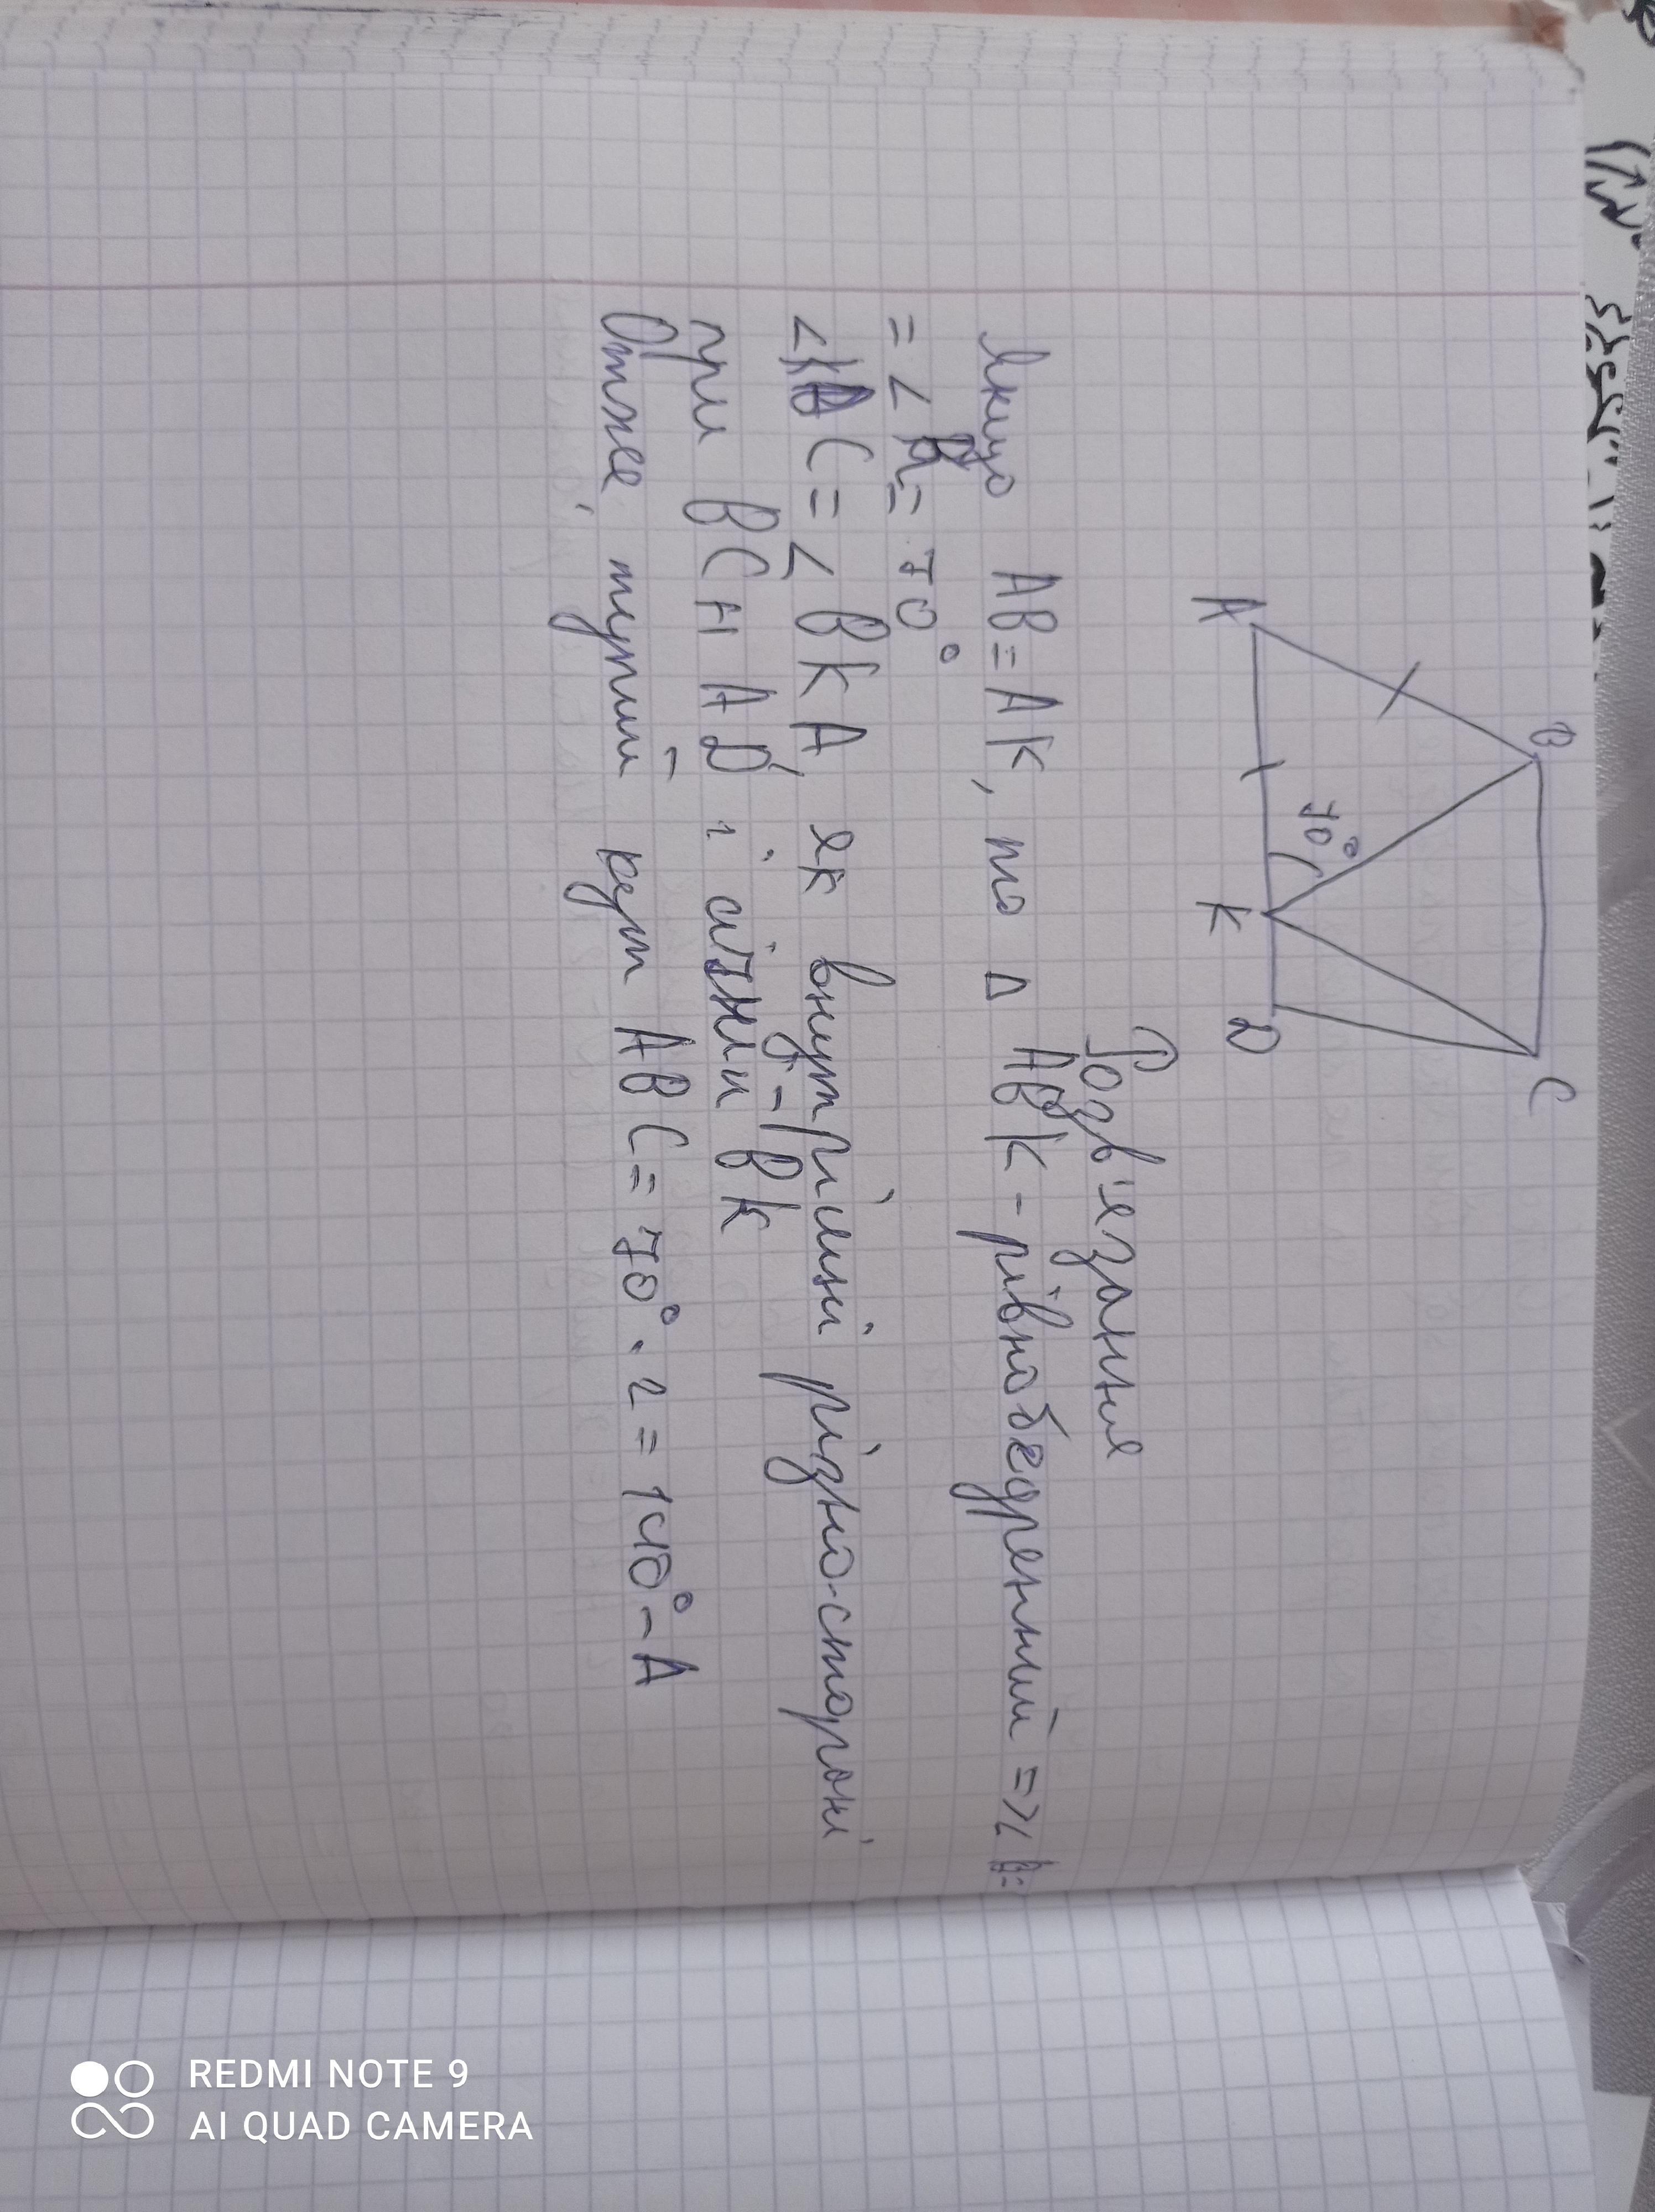 B
C
A
K
D
70°
Розв'язання
Якщо AB=AK, то △ ABK - рівнобедренний => ∠ B=
= ∠ K= 70°
∠ KBC = ∠ BKA, як внутрішні різно-стороні
при BC ॥ AD і січній BK
Отже, тупий кут ABC = 70° · 2 = 140° - A
REDMI NOTE 9
AI QUAD CAMERA